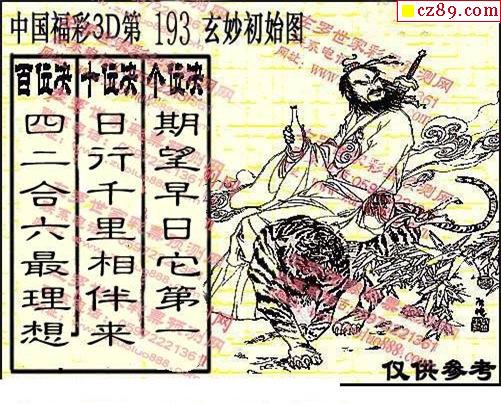 cz89.com
中国福彩3D第 193 玄妙初始图
百位决 十位决 个位决
四二合六最理想
日行千里相伴来
期望早日它第一
仅供参考